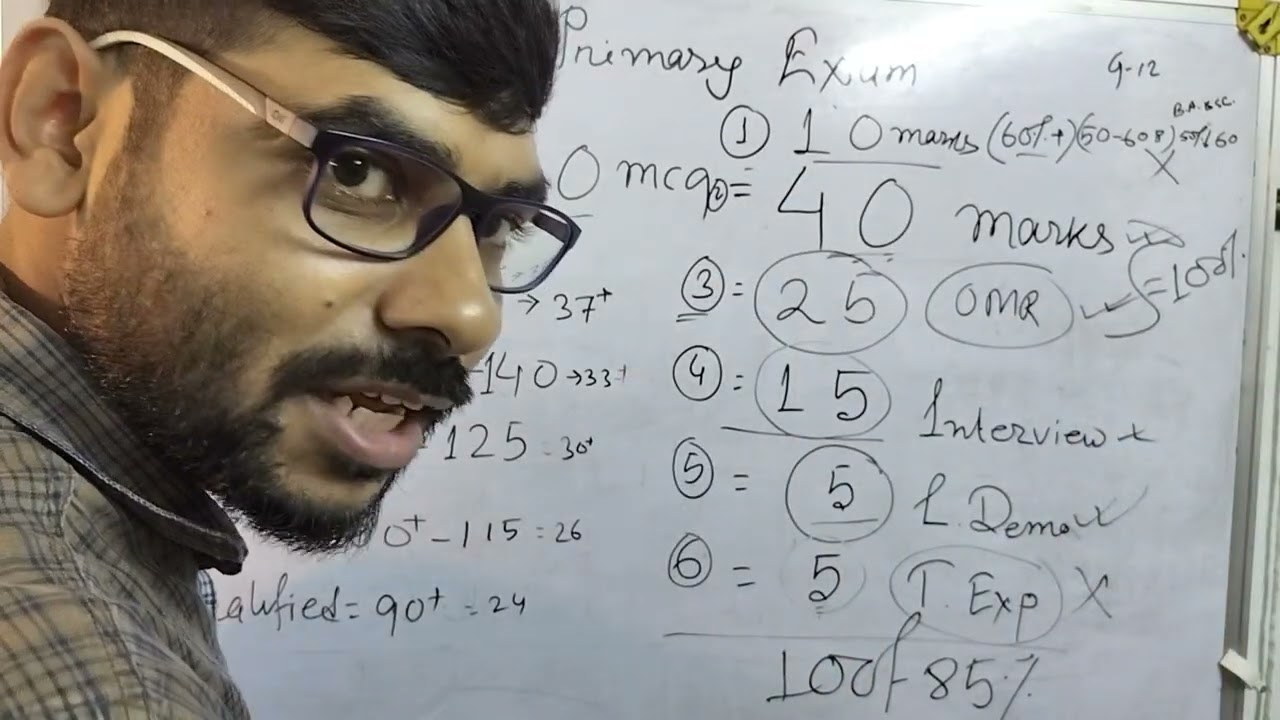 Primary Exam
G-12
B.A. BSC.
① 10 marks (60%+) (50-60%) 50%
0 mcq ② = 40 marks
③ = 25 OMR = 100%
→ 37+
④ = 15 Interview
140 → 33+
⑤ = 5 L. Demo
125 = 30+
⑥ = 5 T. Exp X
0+ - 115 = 26
alified = 90+ = 24
100 85%